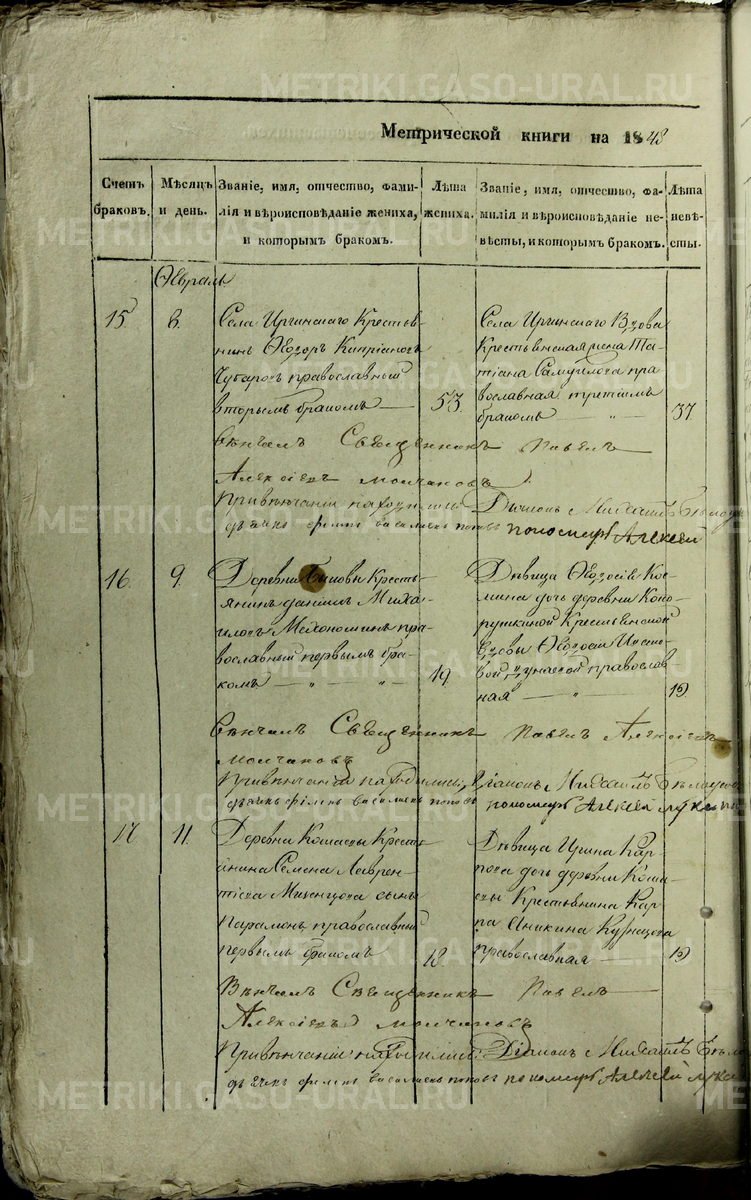 METRIKI.GASO-URAL.RU
Метрической книги на 1848
Счетъ браковъ.
Мѣсяцъ и день.
Званіе, имя, отчество, фами-
лія и вѣроисповѣданіе жениха,
и которымъ бракомъ.
Лѣта жениха.
Званіе, имя, отчество, фа-
милія и вѣроисповѣданіе не-
вѣсты, и которымъ бракомъ.
Лѣта невѣ-
сты.
Февраль
15 8.
Села Иргинскаго Крестья-
нинъ Ѳеодоръ Кипріановъ
Чухаровъ православный
вторымъ бракомъ 53.
Села Иргинскаго Вдова
Крестьянская жена Та-
тіана Самуилова пра-
вославная третіимъ
бракомъ 37
Вѣнчалъ Священникъ Павелъ
Алексіевъ Молчановъ
При вѣнчаніи находились: Діаконъ Михаилъ
дьячекъ Филипъ Васильевъ Поповъ пономарь Алексей
16. 9.
Деревни Кресть-
янинъ Даніилъ Миха-
иловъ пра-
вославный первымъ бра-
комъ 19
Дѣвица Ѳеодосія Кос-
мина дочь деревни Коно-
рушкиной Крестьянской
вдовы Ѳеодосіи
православ-
ная 19
Вѣнчалъ Священникъ Павелъ Алексіевъ
Молчановъ
При вѣнчаніи находились: Діаконъ Михаилъ
дьячекъ Филипъ Васильевъ Поповъ пономарь Алексей
17 11.
Деревни Кресть-
янина Семена Лаврен-
тіева сынъ
Парамонъ православный
первымъ бракомъ 18.
Дѣвица Ирина Кар-
пова дочь деревни
Крестьянина Кар-
па Аникина Кузнецова
православная 19
Вѣнчалъ Священникъ Павелъ
Алексіевъ Молчановъ
При вѣнчаніи находились: Діаконъ Михаилъ
дьячекъ Филипъ Васильевъ Поповъ пономарь Алексей